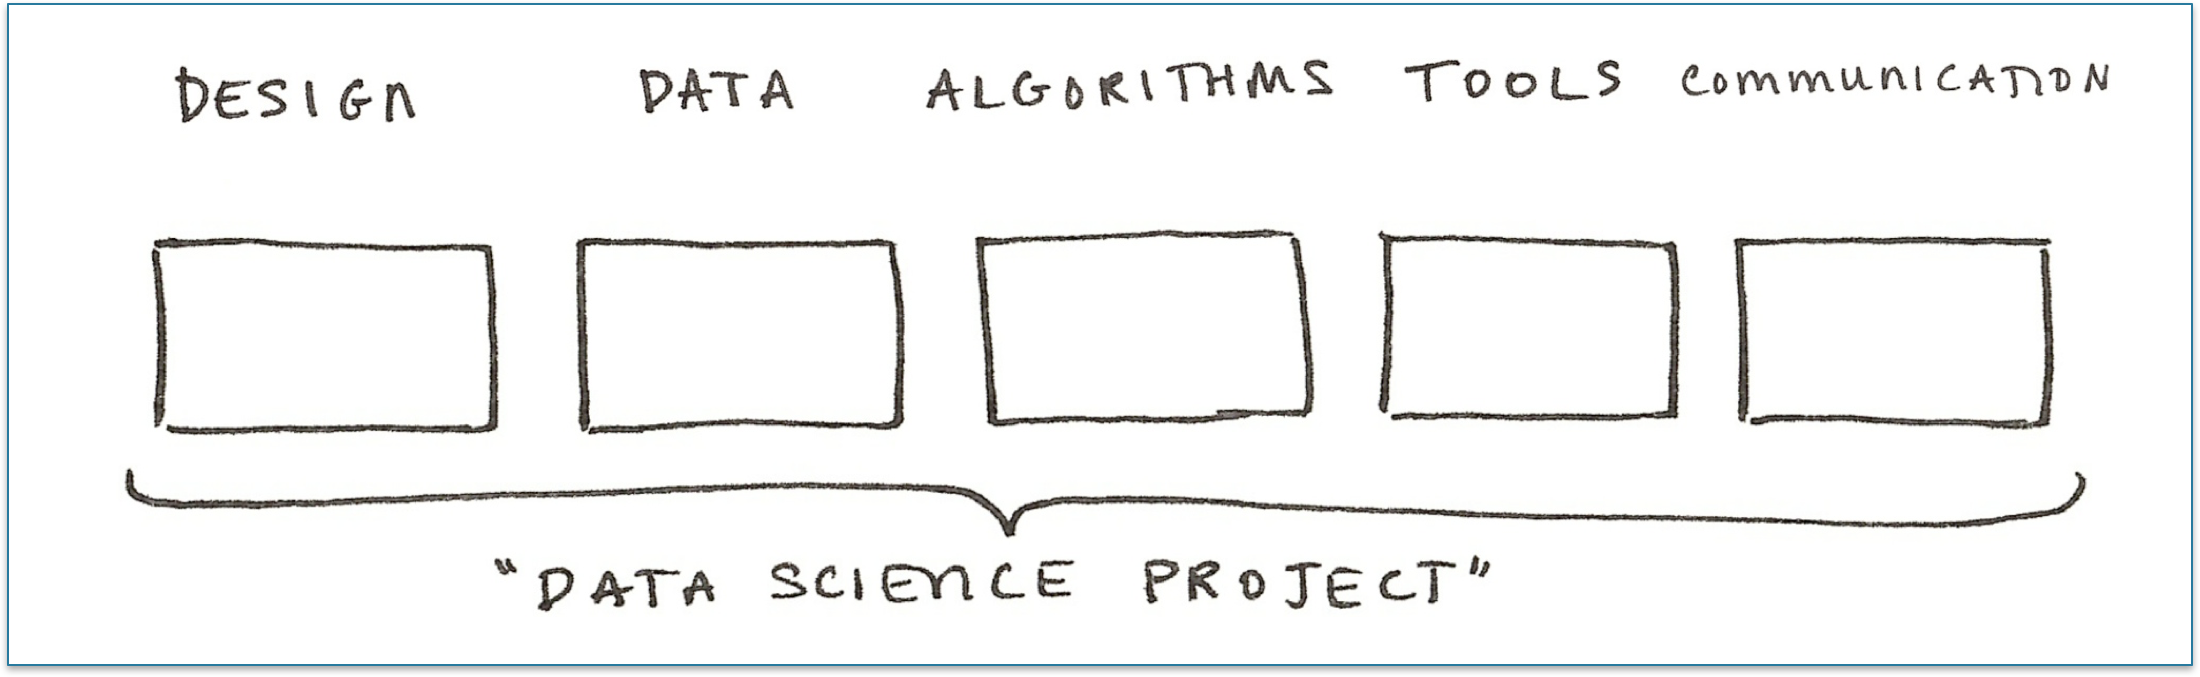 DESIGN DATA ALGORITHMS TOOLS COMMUNICATION
"DATA SCIENCE PROJECT"